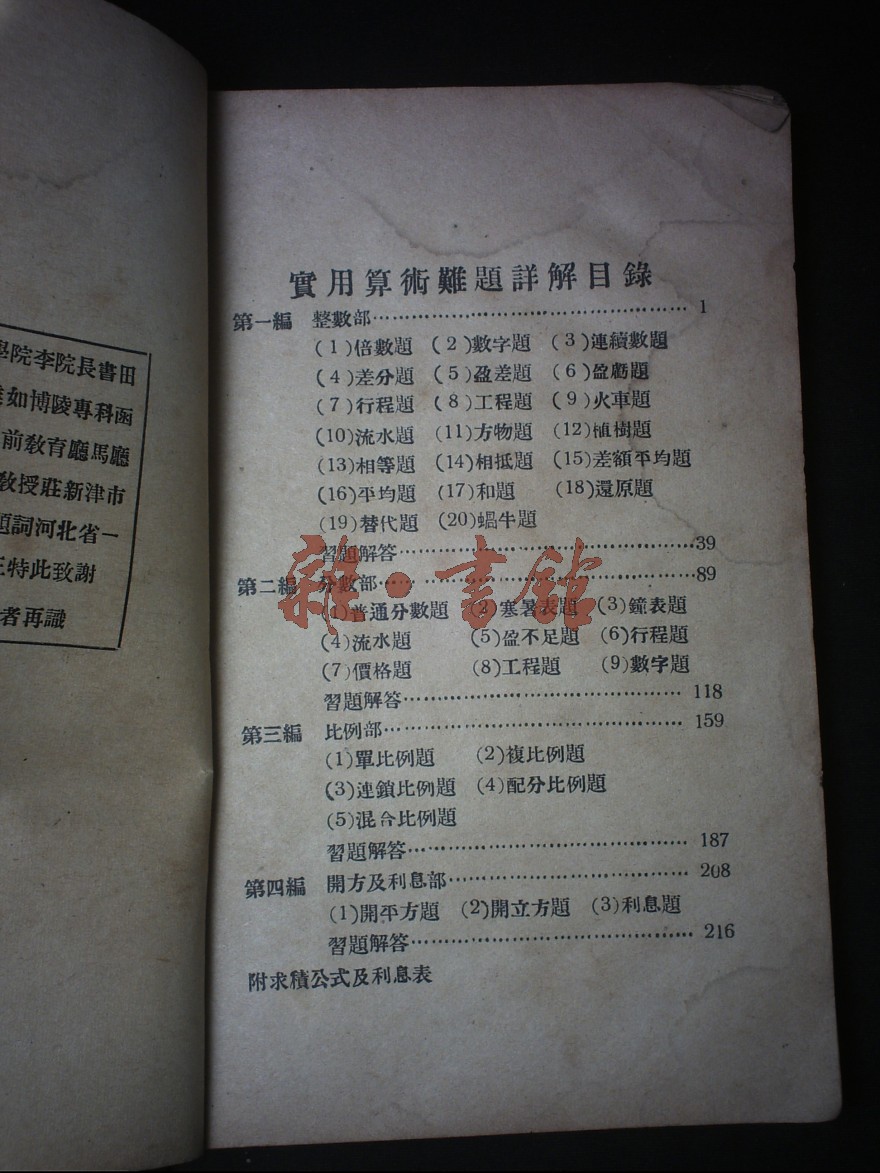 學院李院長書田
如博陵專科函
前教育廳馬廳
教授莊新津市
題詞河北省一
特此致謝
者再識
實用算術難題詳解目錄
第一編 整數部……………………………………1
(1)倍數題 (2)數字題 (3)連續數題
(4)差分題 (5)盈差題 (6)盈虧題
(7)行程題 (8)工程題 (9)火車題
(10)流水題 (11)方物題 (12)植樹題
(13)相等題 (14)相抵題 (15)差額平均題
(16)平均題 (17)和題 (18)還原題
(19)替代題 (20)蝸牛題
習題解答……………………………………39
第二編 分數部……………………………………89
(1)普通分數題 (2)寒暑表題 (3)鐘表題
(4)流水題 (5)盈不足題 (6)行程題
(7)價格題 (8)工程題 (9)數字題
習題解答……………………………………118
第三編 比例部……………………………………159
(1)單比例題 (2)複比例題
(3)連鎖比例題 (4)配分比例題
(5)混合比例題
習題解答……………………………………187
第四編 開方及利息部……………………………208
(1)開平方題 (2)開立方題 (3)利息題
習題解答……………………………………216
附求積公式及利息表
雜·書館